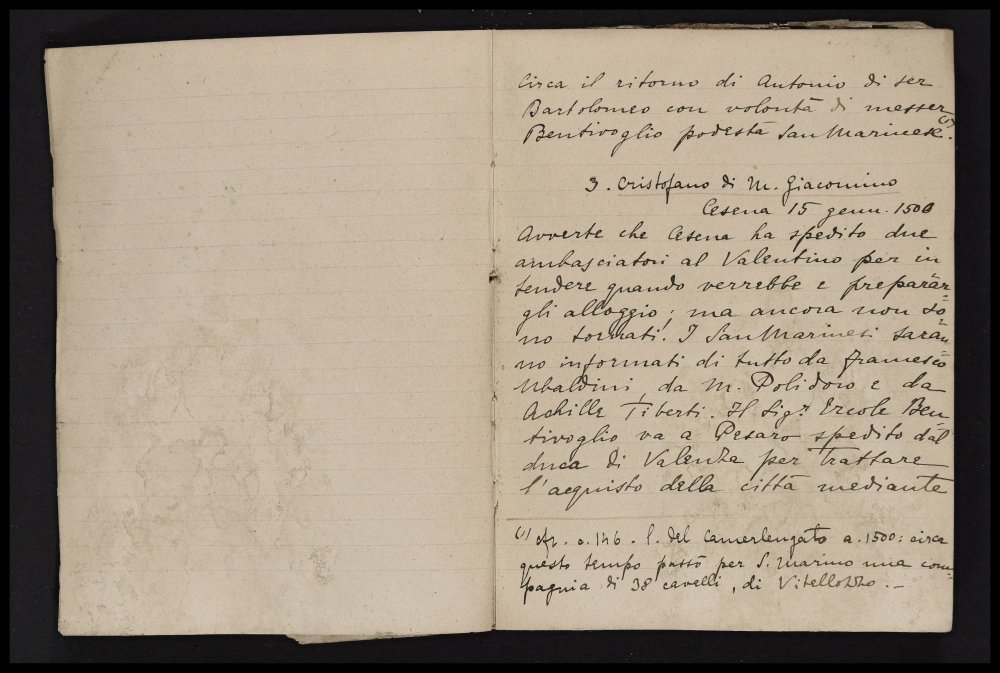 Circa il ritorno di Antonio di ser
Bartolomeo con volontà di messer
Bentivoglio podestà San Marinese (1).
3. Cristofano di M. Giacomino
Cesena 15 genn. 1500
Avverte che Cesena ha spedito due
ambasciatori al Valentino per in
tendere quando verrebbe e preparar=
gli alloggio; ma ancora non so=
no tornati. I San Marinesi saran
no informati di tutto da Francesco
Ubaldini, da M. Polidoro e da
Achille Tiberti. Il Sigr. Ercole Ben
tivoglio va a Pesaro spedito dal
duca di Valenza per trattare
l'acquisto della città mediante
(1) Cfr. c. 146. l. del Camerlengato a. 1500: circa
questo tempo passò per S. Marino una com=
pagnia di 38 cavelli, di Vitellozzo. –